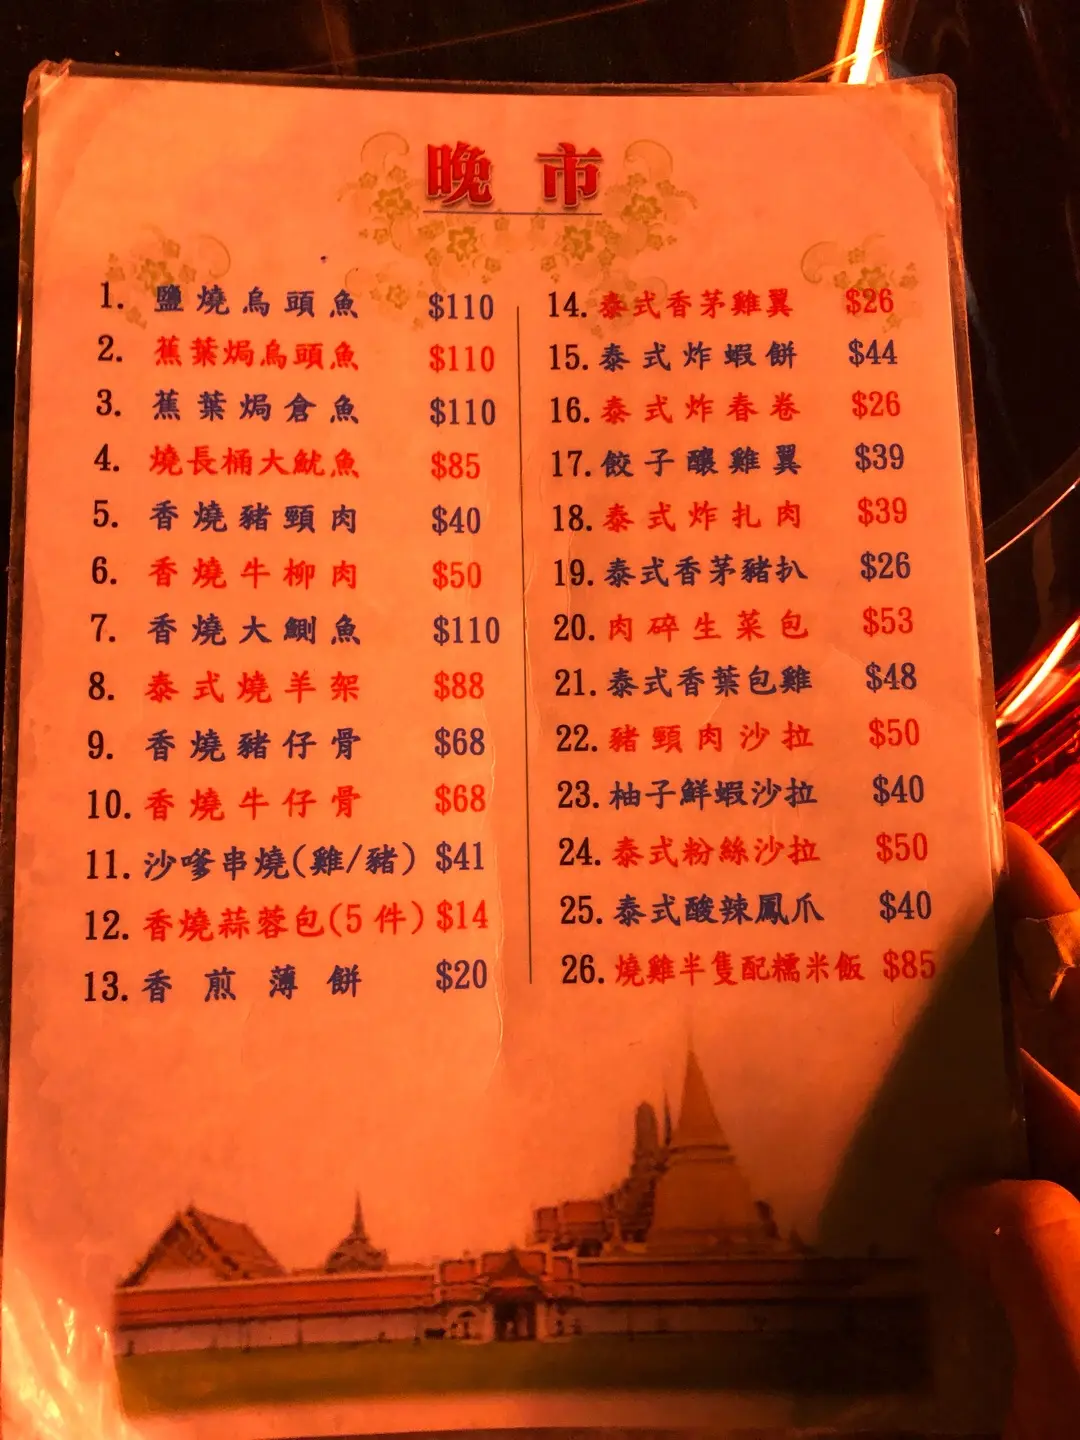 晚市
1. 鹽燒烏頭魚 $110
2. 蕉葉焗烏頭魚 $110
3. 蕉葉焗倉魚 $110
4. 燒長桶大魷魚 $85
5. 香燒豬頸肉 $40
6. 香燒牛柳肉 $50
7. 香燒大鰂魚 $110
8. 泰式燒羊架 $88
9. 香燒豬仔骨 $68
10. 香燒牛仔骨 $68
11. 沙嗲串燒(雞/豬) $41
12. 香燒蒜蓉包(5件) $14
13. 香煎薄餅 $20
14. 泰式香茅雞翼 $26
15. 泰式炸蝦餅 $44
16. 泰式炸春卷 $26
17. 餃子釀雞翼 $39
18. 泰式炸扎肉 $39
19. 泰式香茅豬扒 $26
20. 肉碎生菜包 $53
21. 泰式香葉包雞 $48
22. 豬頸肉沙拉 $50
23. 柚子鮮蝦沙拉 $40
24. 泰式粉絲沙拉 $50
25. 泰式酸辣鳳爪 $40
26. 燒雞半隻配糯米飯 $85